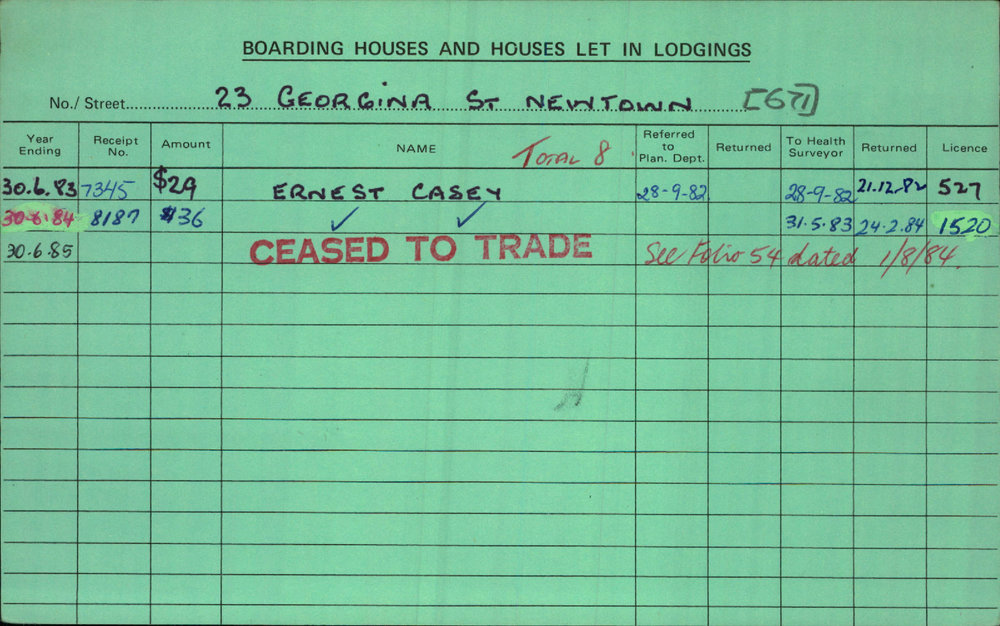 BOARDING HOUSES AND HOUSES LET IN LODGINGS
No./ Street 23 GEORGINA ST NEWTOWN [671]
Year Ending Receipt No. Amount NAME TOTAL 8 Referred to Plan. Dept. Returned To Health Surveyor Returned Licence
30.6.83 7345 $29 ERNEST CASEY 28-9-82 28-9-82 21.12.82 527
30.6.84 8187 $36 ✓ ✓ 31.5.83 24-2.84 1520
30.6.85 CEASED TO TRADE See Folio 54 dated 1/8/84.